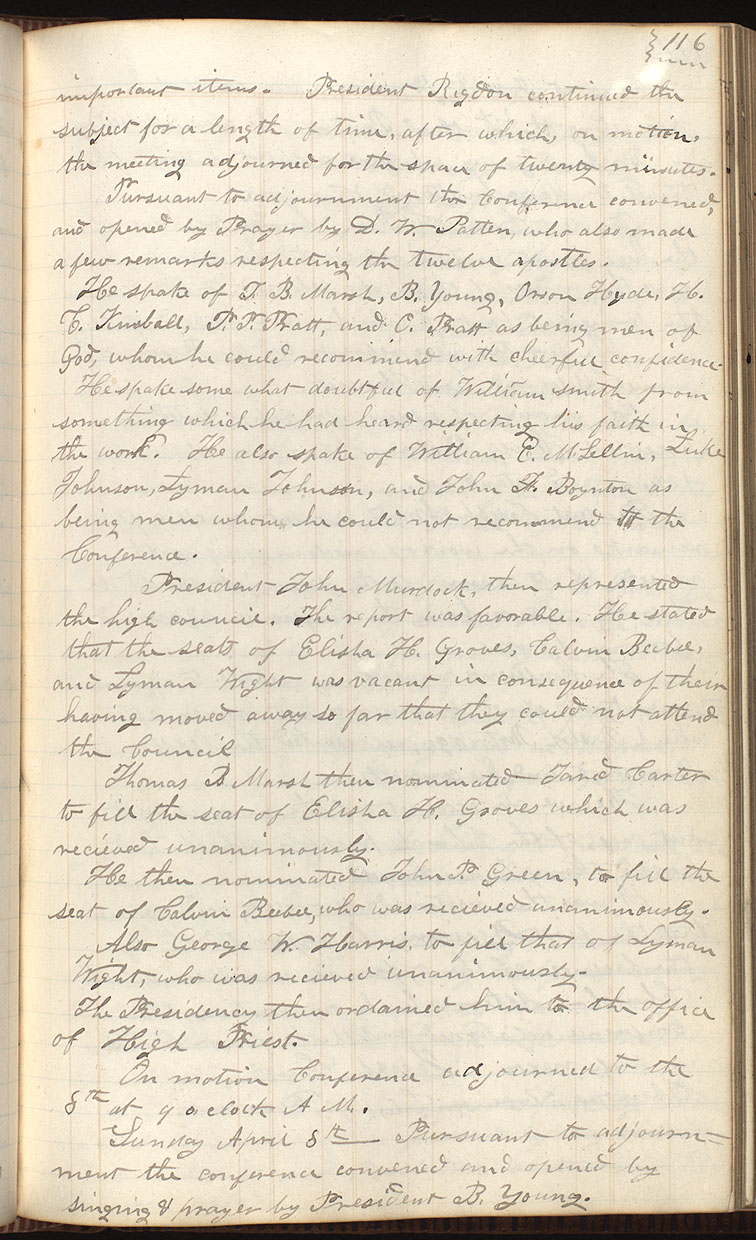 116
important items. President Rigdon continued the
subject for a length of time, after which, on motion,
the meeting adjourned for the space of twenty minutes.
Pursuant to adjournment the Conference convened,
and opened by Prayer by D. W. Patten, who also made
a few remarks respecting the twelve apostles.
He spake of T. B. Marsh, B. Young, Orson Hyde, H.
C. Kimball, P. P. Pratt, and O. Pratt as being men of
God, whom he could recommend with cheerful confidence.
He spake some what doubtful of William Smith from
something which he had heard respecting his faith in
the work. He also spake of William E. McLellin, Luke
Johnson, Lyman Johnson, and John F. Boynton as
being men whom he could not recommend to the
Conference.
President John Murdock, then represented
the high council. The report was favorable. He stated
that the seats of Elisha H. Groves, Calvin Beebee,
and Lyman Wight was vacant in consequence of their
having moved away so far that they could not attend
the Council
Thomas B Marsh then nominated Jared Carter
to fill the seat of Elisha H. Groves which was
recieved unanimously.
He then nominated John P. Green, to fill the
seat of Calvin Beebee, who was recieved unanimously.
Also George W. Harris, to fill that of Lyman
Wight, who was recieved unanimously.
The Presidency then ordained him to the office
of High Priest.
On motion Conference adjourned to the
8th at 9 o clock A M.
Sunday April 8th Pursuant to adjourn-
ment the conference convened and opened by
singing & prayer by President B. Young.